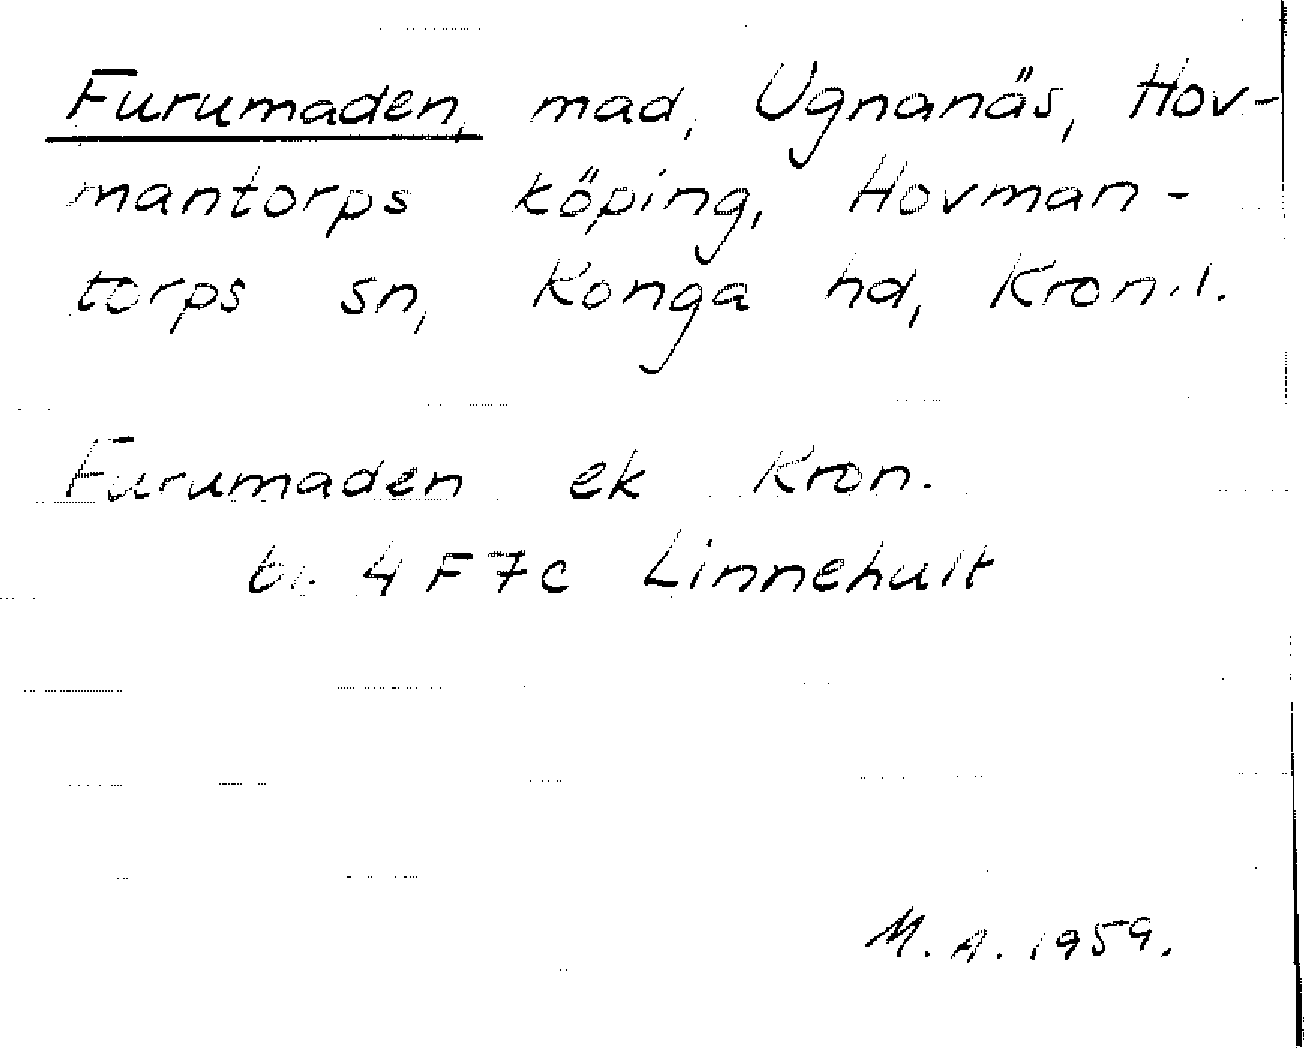 Furumaden, mad, Ugnanäs, Hov-
mantorps köping, Hovman-
torps sn, Konga hd, Kron.l.
Furumaden ek Kron.
bl. 4F7c Linnehult
M.A. 1959.